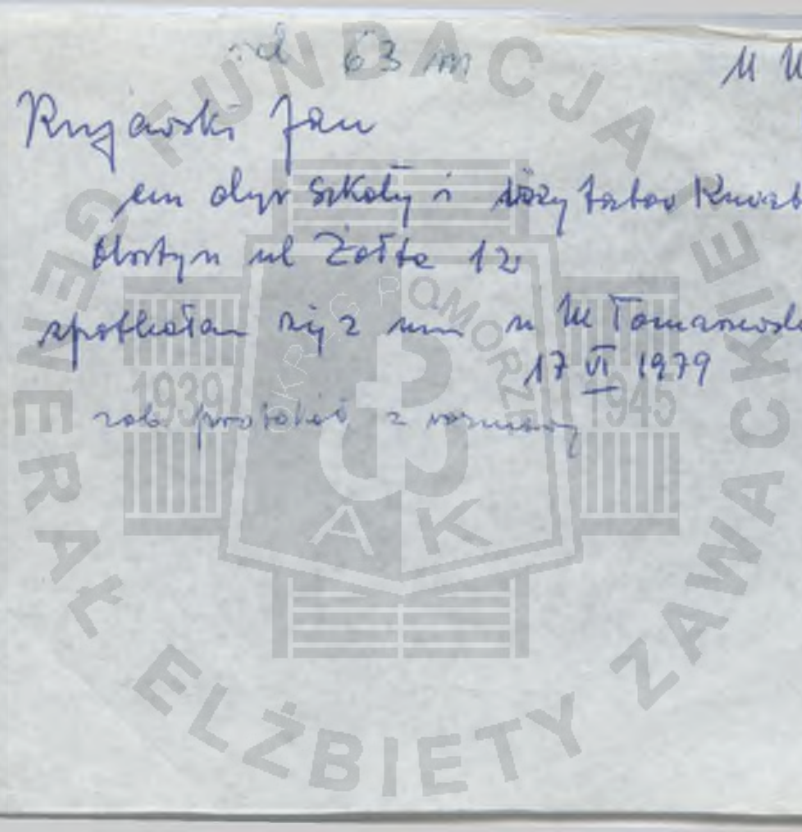 63 m
Kujawski Jan
em dyr szkoły i wizytator Kurat
Olsztyn ul Żołta 12
spotkałam się z nim u M Tomaszewsk
17 VI 1979
zob protokół z rozmowy
FUNDACJA GENERAŁ ELŻBIETY ZAWACKIEJ
OKRĘG POMORZE
1939 1945
AK